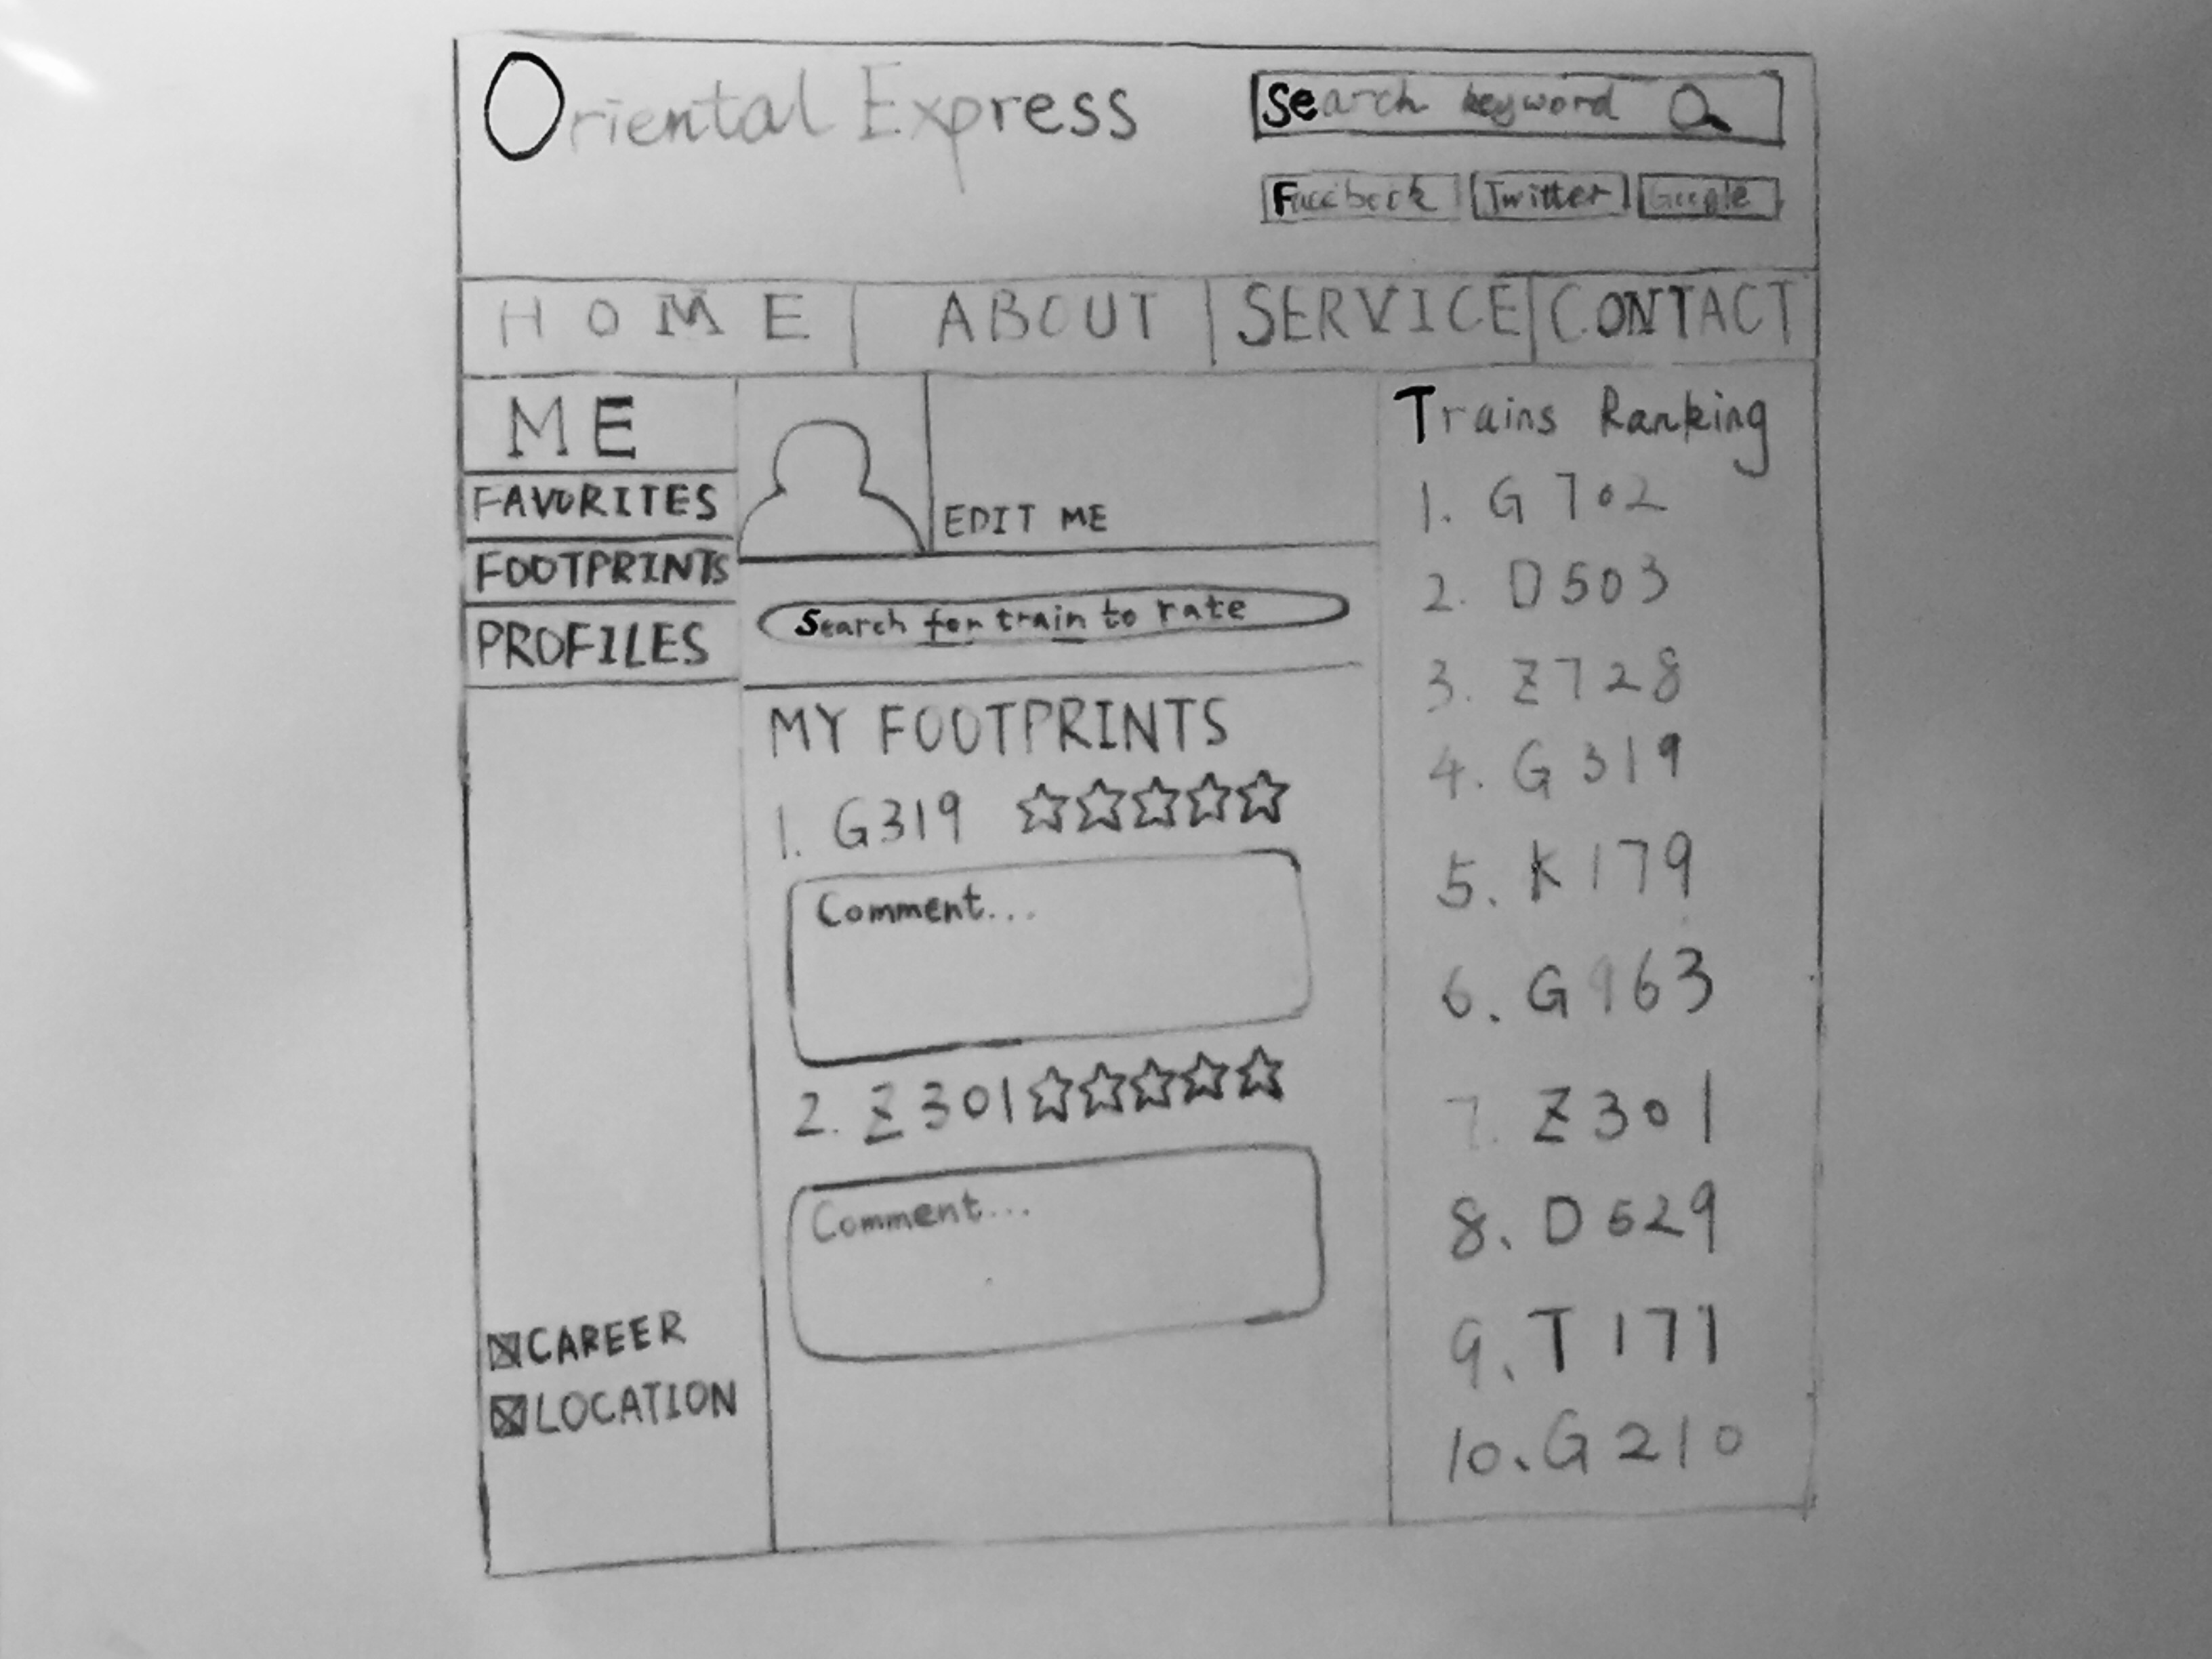 Oriental Express
Search keyword
Facebook Twitter Google
HOME ABOUT SERVICE CONTACT
ME
FAVORITES
FOOTPRINTS
PROFILES
CAREER
LOCATION
EDIT ME
Search for train to rate
MY FOOTPRINTS
1. G319
Comment...
2. Z301
Comment...
Trains Ranking
1. G702
2. D503
3. Z728
4. G319
5. K179
6. G963
7. Z301
8. D529
9. T171
10. G210